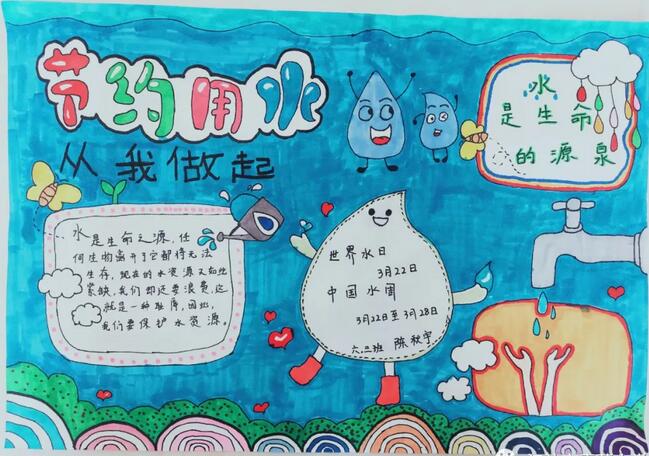 节约用水
从我做起
水
是生命
的源泉
水是生命之源,任
何生物离开了它都将无法
生存,现在的水资源又如此
紧缺,我们却还要浪费,这
就是一种耻辱,因此,
我们要保护水资源。
世界水日
3月22日
中国水周
3月22日至3月28日
六二班 陈秋宇